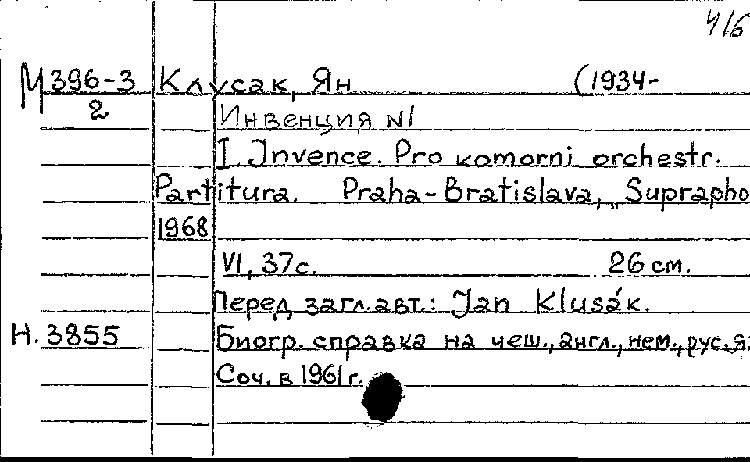 4/6
М 396-3 Клусак, Ян (1934-
2
Инвенция N1
I. Invence. Pro komorni orchestr.
Partitura. Praha-Bratislava, Suprapho
1968
VI, 37с. 26 см.
Перед загл.авт.: Jan Klusák.
Н. 3855 Биогр. справка на чеш., англ., нем., рус. я
Соч. в 1961 г.